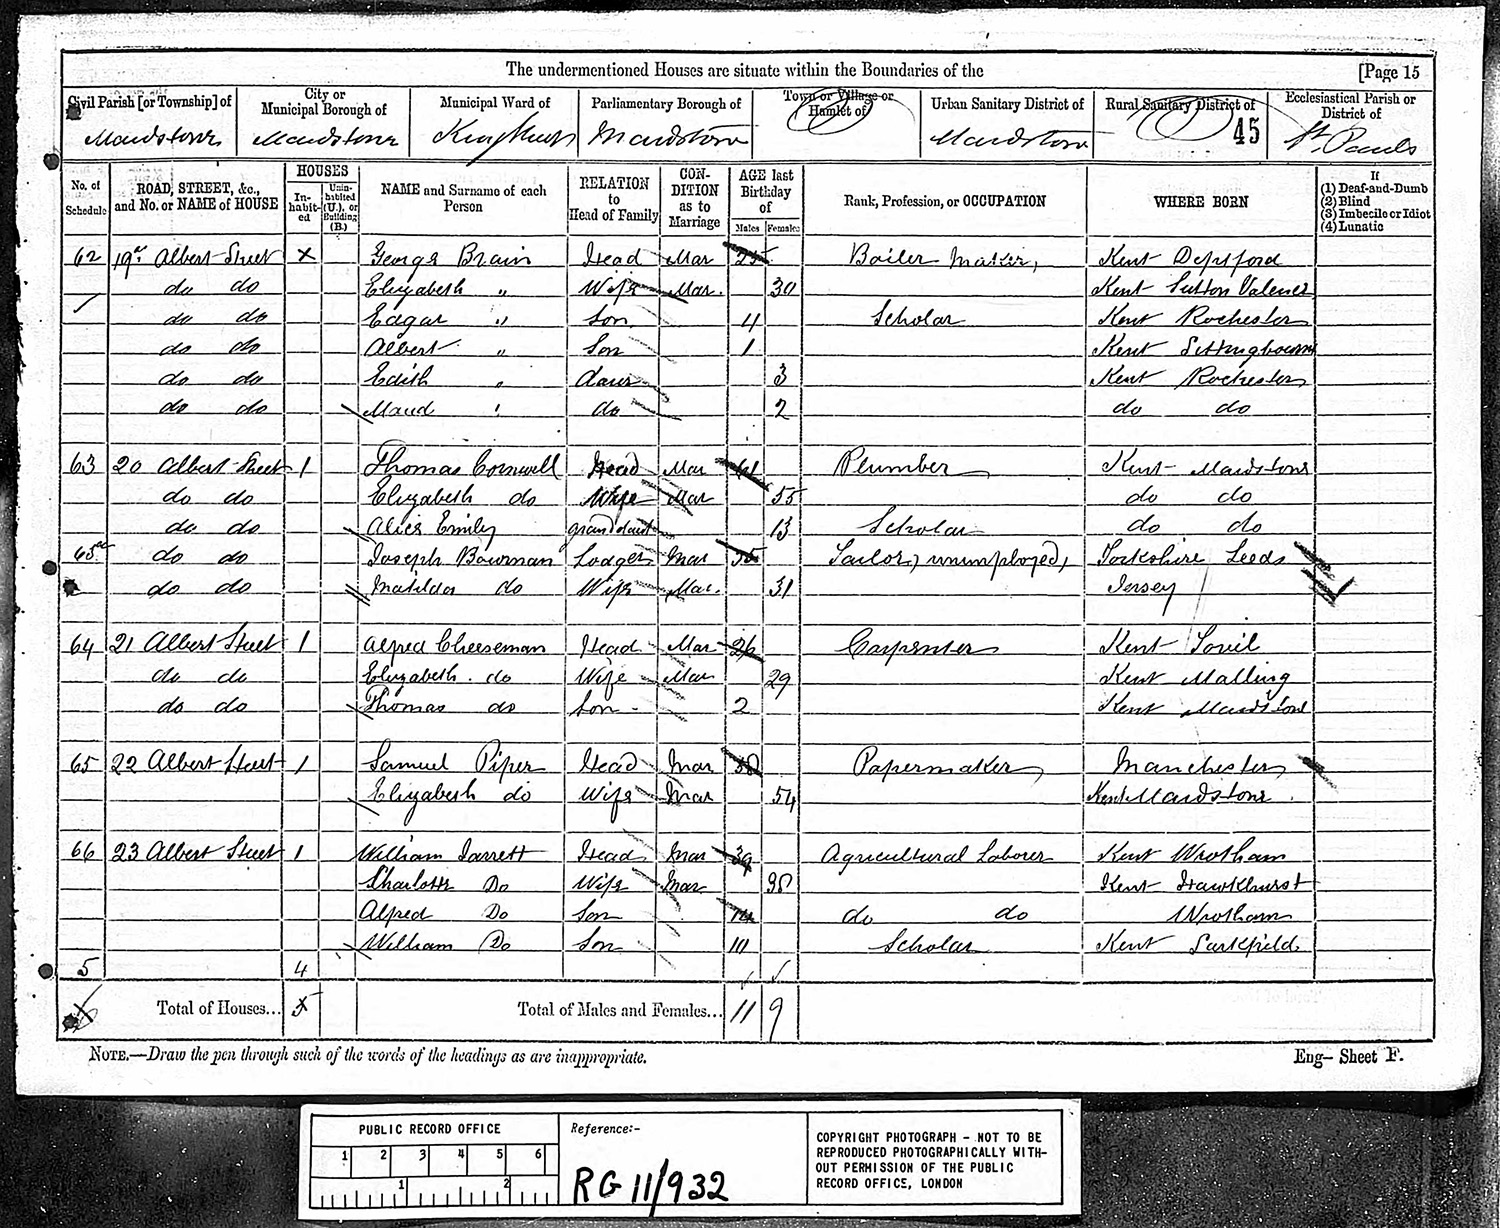 The undermentioned Houses are situate within the Boundaries of the [Page 15
Civil Parish [or Township] of City or Municipal Borough of Municipal Ward of Parliamentary Borough of Town or Village or Hamlet of Urban Sanitary District of Rural Sanitary District of Ecclesiastical Parish or District of
Maidstone Maidstone Maidstone Maidstone 45 St. Pauls
No. of Schedule ROAD, STREET, &c., and No. or NAME of HOUSE HOUSES In-habit-ed Unin-habited (U.), or Building (B.) NAME and Surname of each Person RELATION to Head of Family CON-DITION as to Marriage AGE last Birthday of Males Females Rank, Profession, or OCCUPATION WHERE BORN If (1) Deaf-and-Dumb (2) Blind (3) Imbecile or Idiot (4) Lunatic
62 19 Albert Street X George Brain Head Mar 25 Boiler Maker, Kent Deptford
do do Elizabeth " Wife Mar. 30 Kent Sutton Valence
do do Edgar " Son 4 Scholar Kent Rochester
do do Albert " Son 1 Kent Sittingbourne
do do Edith " daur 3 Kent Rochester
do do Maud " do 2 do do
63 20 Albert Street 1 Thomas Cornwell Head Mar 61 Plumber Kent Maidstone
do do Elizabeth do Wife Mar 55 do do
do do Alice Emily grand daur 13 Scholar do do
do do Joseph Bowman Lodger Mar 35 Tailor, unemployed, Yorkshire Leeds
do do Matilda do Wife Mar. 31 Jersey
64 21 Albert Street 1 Alfred Cheeseman Head Mar 26 Carpenter Kent
do do Elizabeth do Wife Mar 29 Kent Malling
do do Thomas do Son 2 Kent Maidstone
65 22 Albert Street 1 Samuel Piper Head Mar 58 Papermaker Manchester
Elizabeth do Wife Mar 54 Kent Maidstone
66 23 Albert Street 1 William Jarrett Head Mar 39 Agricultural Laborer Kent Wrotham
Charlotte Do Wife Mar 38 Kent Hawkhurst
Alfred Do Son 14 do do Wrotham
William Do Son 10 Scholar Kent Larkfield
5 4
Total of Houses... 5 Total of Males and Females... 11 9
NOTE.—Draw the pen through such of the words of the headings as are inappropriate. Eng– Sheet F.
PUBLIC RECORD OFFICE
1 2 3 4 5 6
1 2
Reference:-
RG 11/932
COPYRIGHT PHOTOGRAPH - NOT TO BE
REPRODUCED PHOTOGRAPHICALLY WITH-
OUT PERMISSION OF THE PUBLIC
RECORD OFFICE, LONDON